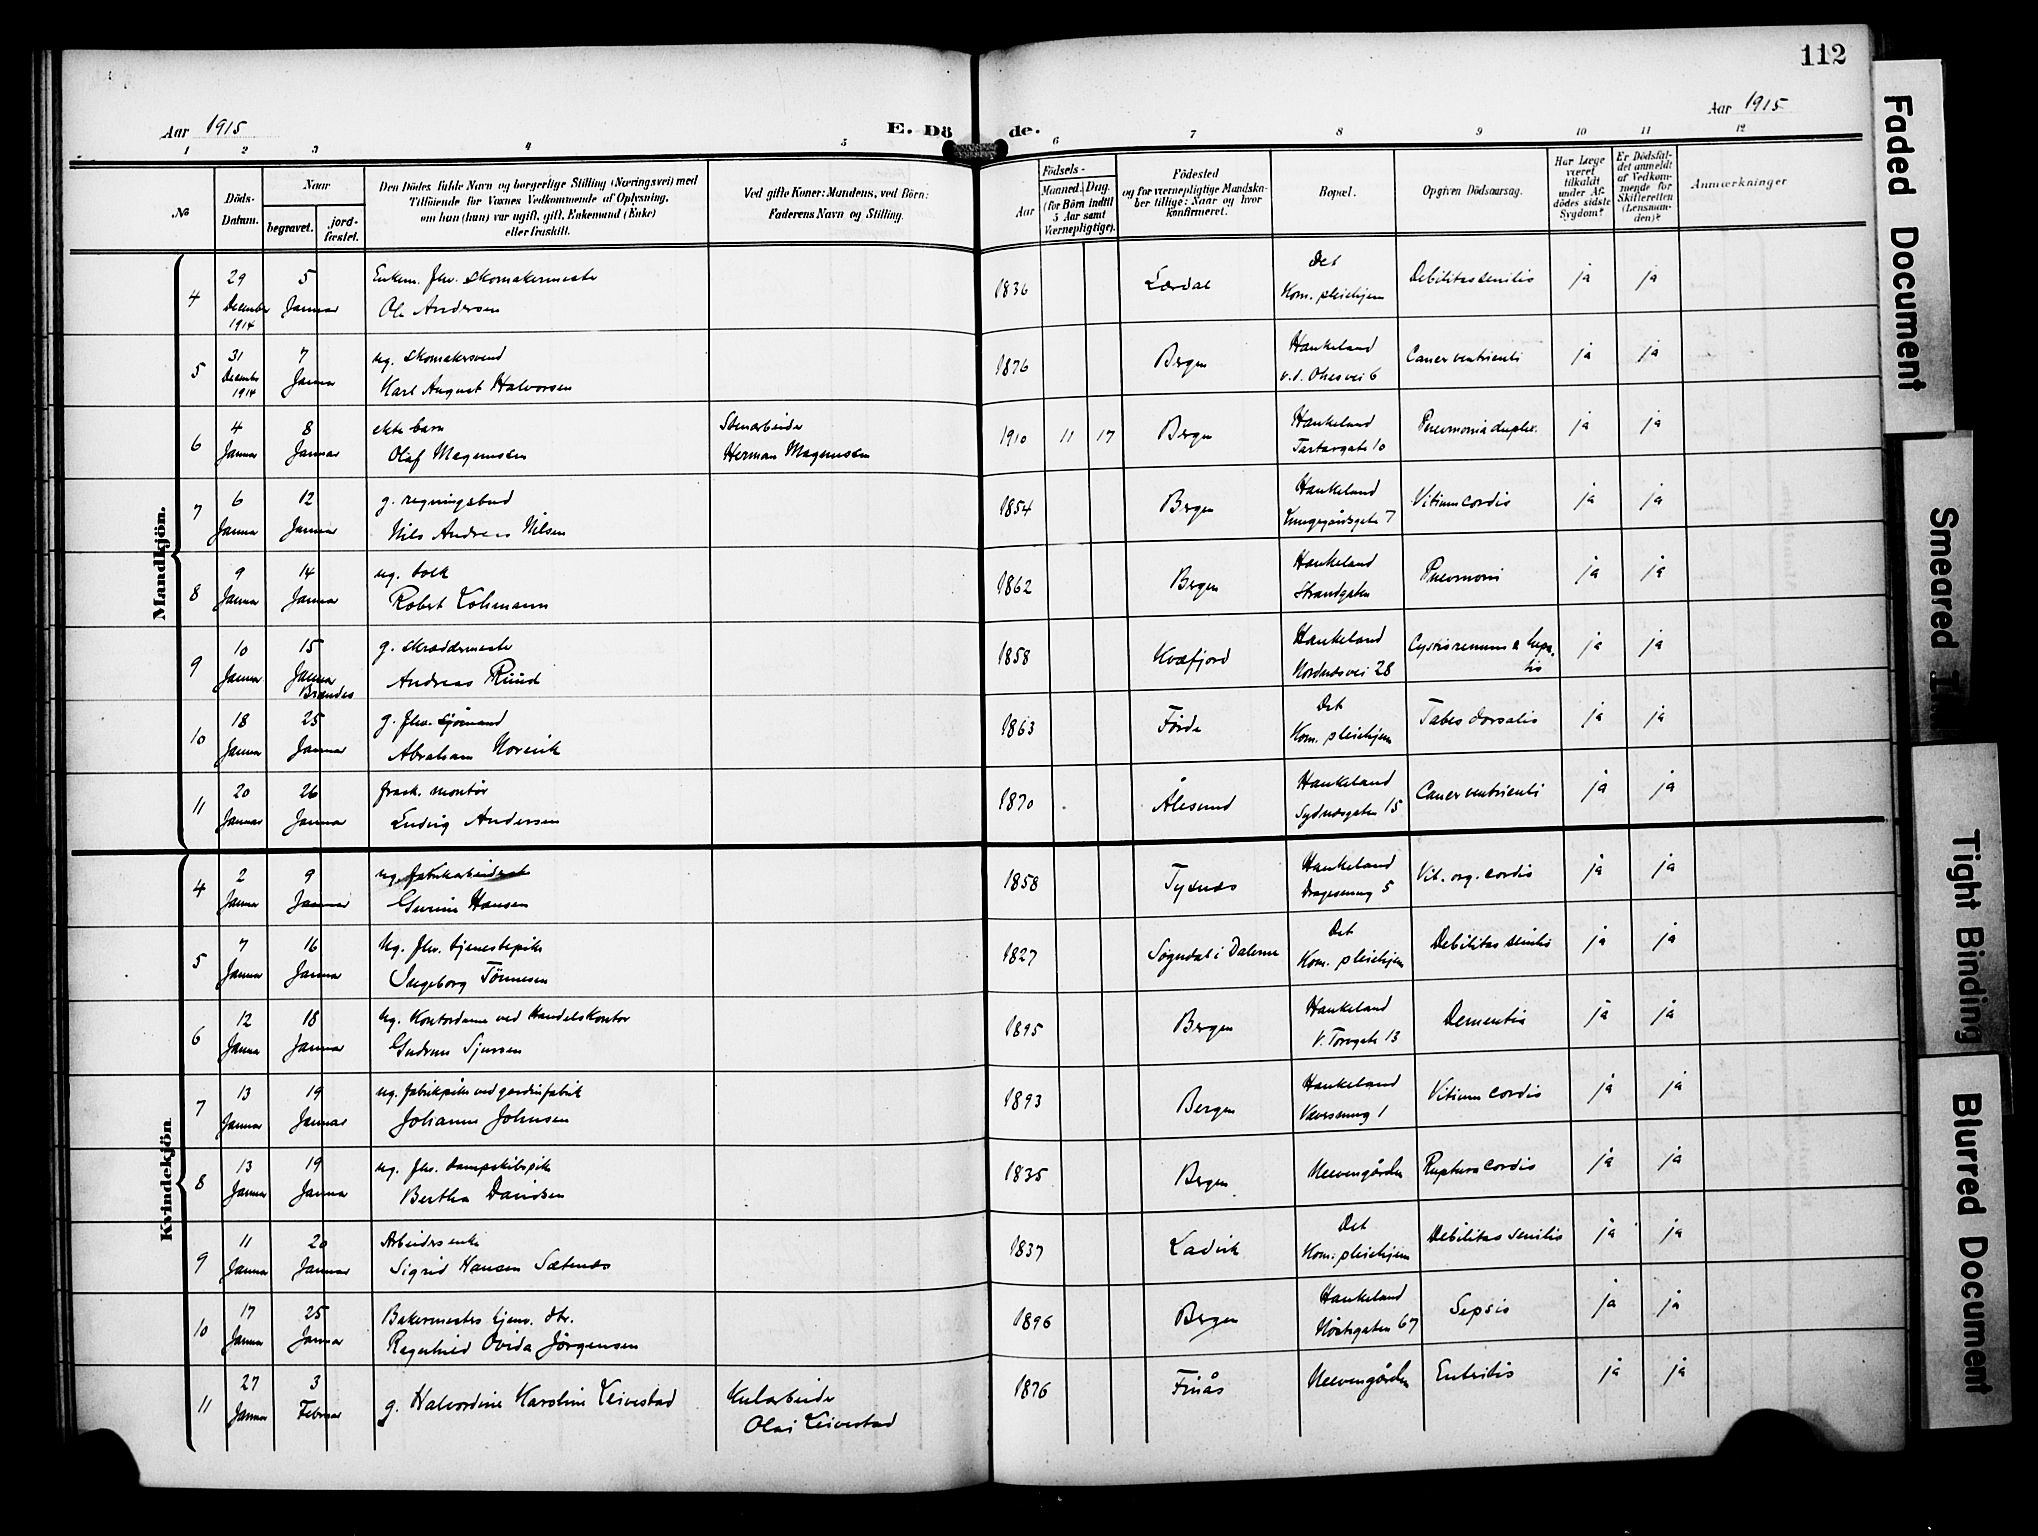 112
Aar 1915
E. Dö
de.
Aar 1915
1 2 3 4 5 6 7 8 9 10 11 12
No
Döds-
Datum.
Naar
begravet.
jord-
fæstet.
Den Dödes fulde Navn og borgerlige Stilling (Næringsvei) med
Tilföiende for Voxnes Vedkommende af Oplysning,
om han (hun) var ugift, gift, Enkemand (Enke)
eller fraskilt.
Ved gifte Koner: Mandens, ved Börn:
Faderens Navn og Stilling.
Födsels-
Aar
Maaned. Dag.
(for Börn indtil
5 Aar samt
Værnepligtige).
Födested
og for værnepligtige Mandska-
ber tillige: Naar og hvor
konfirmeret.
Bopæl.
Opgiven Dödsaarsag.
Har Læge
været
tilkaldt
under Af-
dödes sidste
Sygdom?
Er Dödsfal-
det anmeldt
af Vedkom-
mende for
Skifteretten
(Lensman-
den)?
Anmærkninger
Mandkjön.
4 29 December 1914 5 Januar Enkem. fhv. skomakermester
Ole Andersen 1836 Lærdal Det Kom. pleiehjem Debilitas senilis ja ja
5 31 December 1914 7 Januar ug. skomakersvend
Karl August Halvorsen 1876 Bergen Haukeland Cancer ventriculi ja ja
6 4 Januar 8 Januar ekte barn
Olaf Magnussen Stenarbeider Herman Magnussen 1910 11 17 Bergen Haukeland Tartargate 10 Pneumonia duplex. ja ja
7 6 Januar 12 Januar g. regningsbud
Nils Andreas Nilsen 1854 Bergen Haukeland Vitium cordis ja ja
8 9 Januar 14 Januar ug. tolk
Robert Lohmann 1862 Bergen Haukeland Strandgaten Pneumoni ja ja
9 10 Januar 15 Januar Brændes g. skræddermester
Andreas Ruud 1858 Kvæfjord Haukeland Nordnesvei 28 Cystis renum & hepatis ja ja
10 18 Januar 25 Januar g. fhv. sjömand
Abraham Norevik 1863 Förde Det Kom. pleiehjem Tabes dorsalis ja ja
11 20 Januar 26 Januar frask. montör
Ludvig Andersen 1870 Ålesund Haukeland Sydnesgaten 15 Cancer ventriculi ja ja
Kvindekjön
4 2 Januar 9 Januar ug. fabrikarbeiderske
Gurine Hansen 1858 Tysnes Haukeland Dragesmug 5 Vit. org. cordis ja ja
5 7 Januar 16 Januar Ug. fhv. tjenestepike
Ingeborg Tönnesen 1827 Sogndal i Dalerne Det Kom. pleiehjem Debilitas senilis ja ja
6 12 Januar 18 Januar Ug. Kontordame ved Handelskontor
Gudrun Sjursen 1895 Bergen Haukeland V. Torvgate 13 Dementia ja ja
7 13 Januar 19 Januar ug. fabrikpike ved gardinfabrik
Johanne Johnsen 1893 Bergen Haukeland Vitium cordis ja ja
8 13 Januar 19 Januar ug. fhv. dampskibspike
Bertha Davidsen 1835 Bergen Neevengården Ruptura cordis ja ja
9 11 Januar 20 Januar Arbeidersenke
Sigrid Hansen Sætenes 1837 Ladvik Det Kom. pleiehjem Debilitas senilis ja ja
10 17 Januar 25 Januar Bakermesters hjemv. dtr.
Ragnhild Ovida Jørgensen 1896 Bergen Haukeland Nöstegaten 67 Sepsis ja ja
11 27 Januar 3 Februar g. Halvordine Karoline Leivestad Kularbeider
Olai Leivestad 1876 Finås Neevengården Enteritis ja ja
Faded Document
Smeared
Tight Binding
Blurred Document